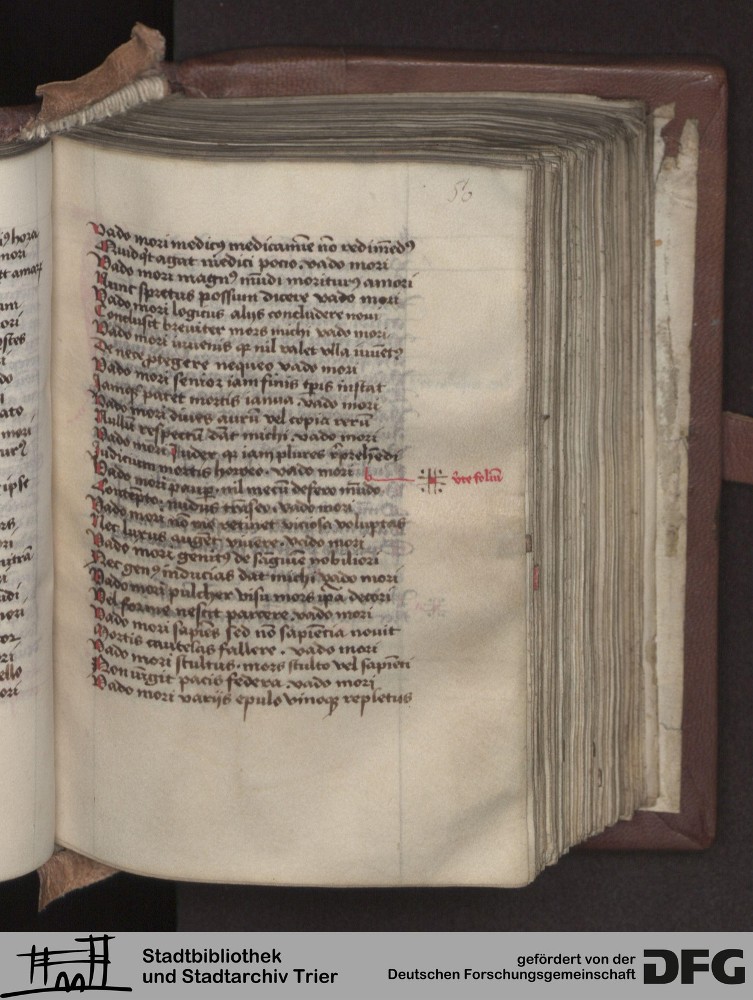 56
Vado mori medicꝰ medicamīe nō redimēdꝰ
Quidq̄t agat medici pocio . vado mori
Vado mori magnꝰ mūdi moriturꝰ amori
Nunc spretus possum dicere vado mori
Vado mori logicus aliis concludere noui
Conclusit breuiter mors michi vado mori
Vado mori iuuenis q̄ nil valet vlla iuuētꝰ
De nece ꝓtegere nequeo vado mori
Vado mori senior iam finis tp̄is instat
Iamqꝫ patet mortis ianua . vado mori
Vado mori diues aurū vel copia rerū
Nullū respectū dāt michi . vado mori
Vado mori Iudex q̄ iam plures r̄prehēdi
Iudicium mortis horreo . vado mori
Vado mori paup̄ . nil mecū defero mūdo
Contēpto . nudus trāseo . vado mori
Vado mori nō me retinet viciosa voluptas
Nec luxus auget viuere . vado mori
Vado mori genitꝰ de sāgūie nobiliori
Nec genꝰ īnducias dat michi vado mori
Vado mori pulcher visu mors ip̄a decori
Vel forme nescit parcere . vado mori
Vado mori sapiēs sed nō sapiētia nouit
Mortis cautelas fallere . vado mori
Vado mori stultus . mors stulto vel sapiēti
Non iūgit pacis federa . vado mori
Vado mori variis epulis vinoqꝫ repletus
v̄te foliū
hora
mori
et amaꝝ
mori
ato
mori
ipse
mori
ello
ori
Stadtbibliothek
und Stadtarchiv Trier
gefördert von der
Deutschen Forschungsgemeinschaft
DFG